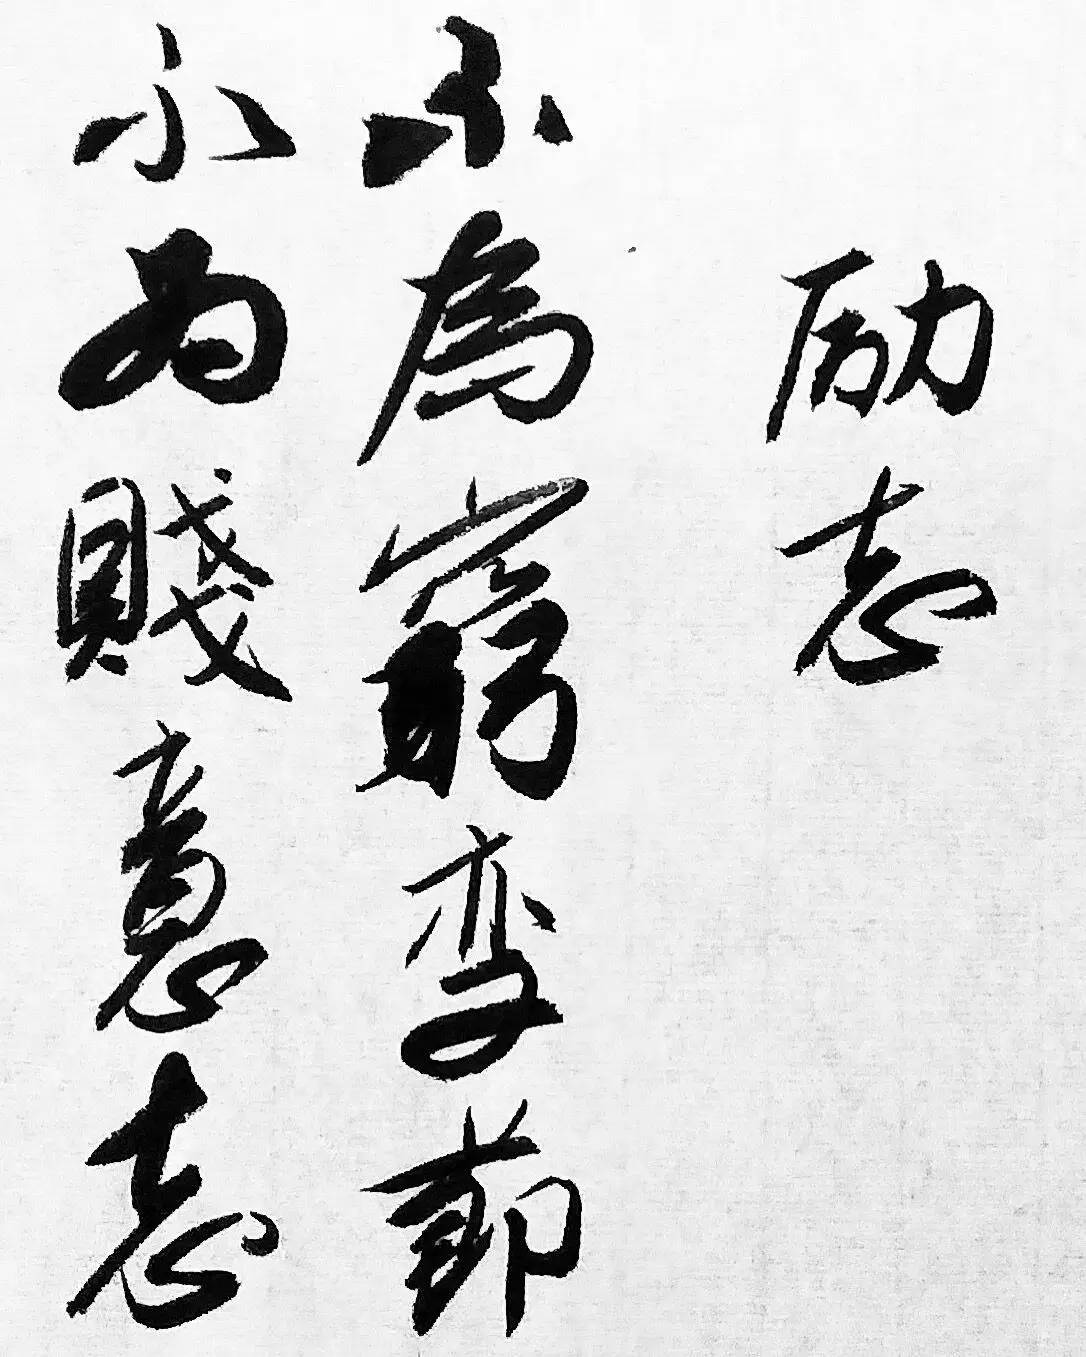 励志
不為窮变節
不为賤意志